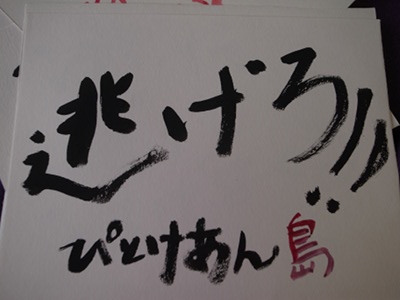 逃げろ!!
ぴとけあん島